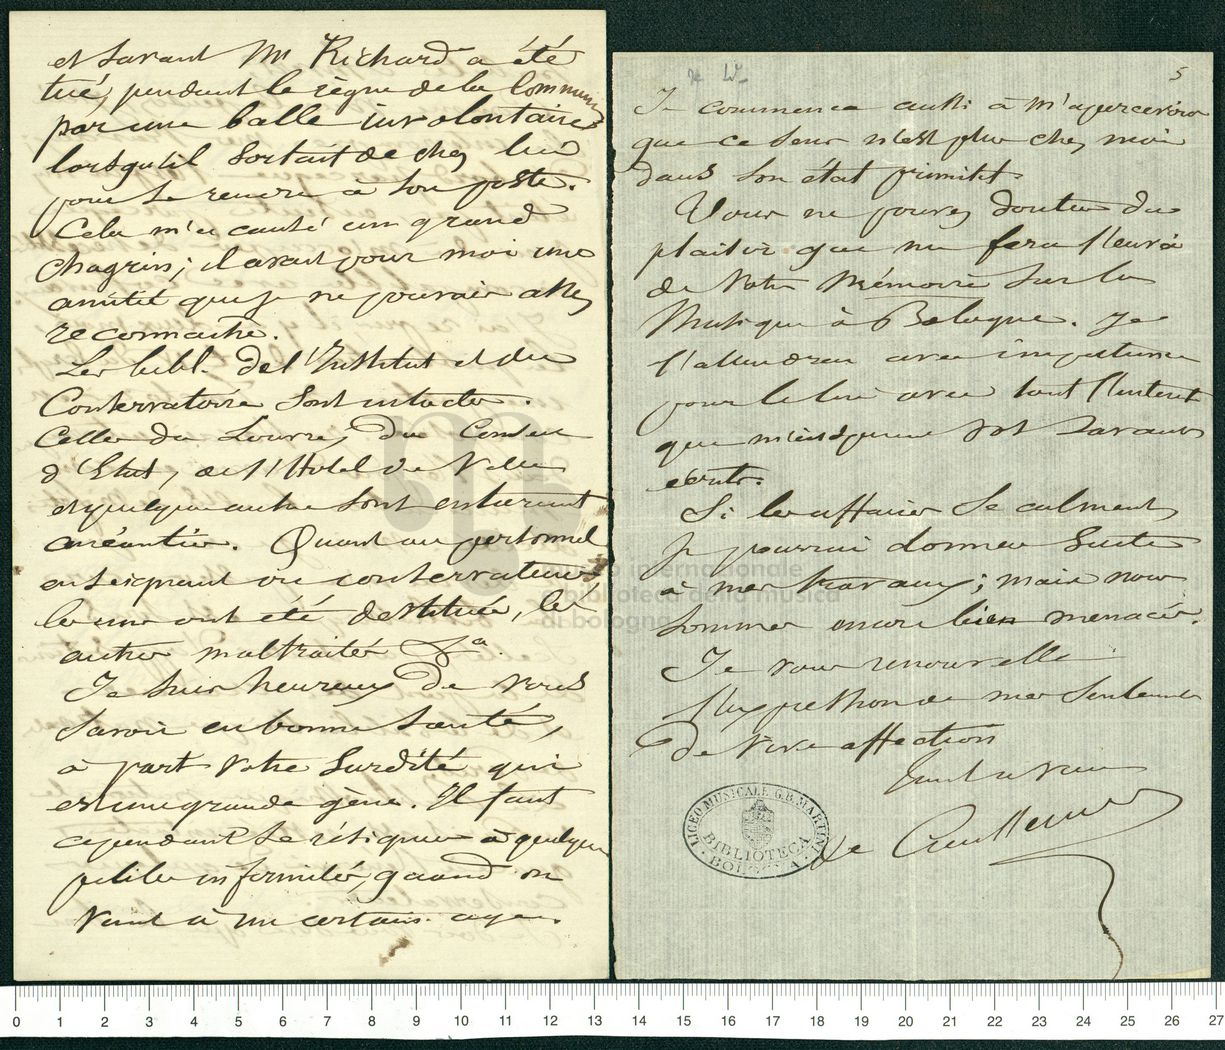 et savant Mr Richard a été
tué, pendant le règne de la Commune
par une balle involontaire
lorsqu'il sortait de chez lui
pour se rendre à son poste.
Cela m'a causé un grand
chagrin; il avait pour moi une
amitié que je ne pouvais assez
reconnaitre.
Les bibl. de l'Institut et du
Conservatoire sont intactes.
Celles du Louvre, du Conseil
d'Etat, de l'Hotel de Ville
et quelques autres sont entièrement
anéanties. Quant au personnel
enseignant ou conservateurs,
les uns ont été destitués, les
autres maltraités &a.
Je suis heureux de vous
savoir en bonne santé,
à part votre surdité qui
est une grande gêne. Il faut
cependant se résigner à quelques
petites infirmités, quand on
vient à un certains age.
5
Je commence aussi à m'apercevoir
que ce sens n'est plus chez moi
dans son état primitif.
Vous ne pouvez douter du
plaisir que me fera l'envoi
de votre Mémoire sur la
Musique à Bologne. Je
l'attendrai avec impatience
pour le lire avec tout l'interet
que m'inspirent vos savants
écrits.
Si les affaires se calment,
je pourrai donner suite
à mes travaux; mais nous
sommes encore bien menacés.
Je vous renouvelle
l'expression de mes sentiments
de vive affection
Tout à vous
de Coussemaker
LICEO MUSICALE G.B. MARTINI
BIBLIOTECA
BOLOGNA
museo internazionale
e biblioteca della musica
di bologna
0 1 2 3 4 5 6 7 8 9 10 11 12 13 14 15 16 17 18 19 20 21 22 23 24 25 26 27